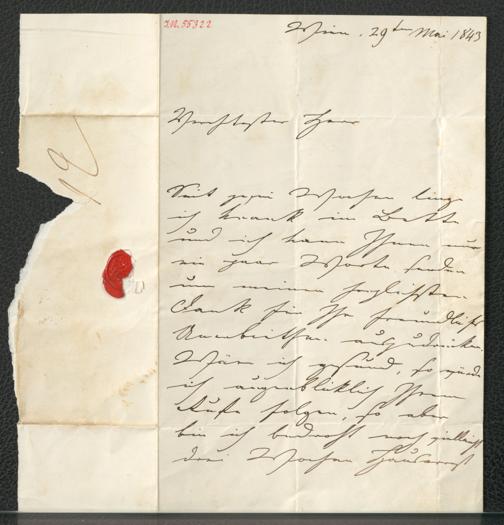 I.N. 55322
Wien, 29ten Mai 1843
Verehrtester Herr
Seit zwei Wochen lieg
ich krank im Bette
und ich kann Ihnen nur
ein paar Worte senden
um meinen herzlichsten
Dank für Ihr freundliches
Anerbiethen auszudrücken.
Wäre ich gesund, so würde
ich augenbliklich Ihrem
Rufe folgen, so aber
bin ich bedroht noch vielleicht
drei Wochen Hausarrest
12